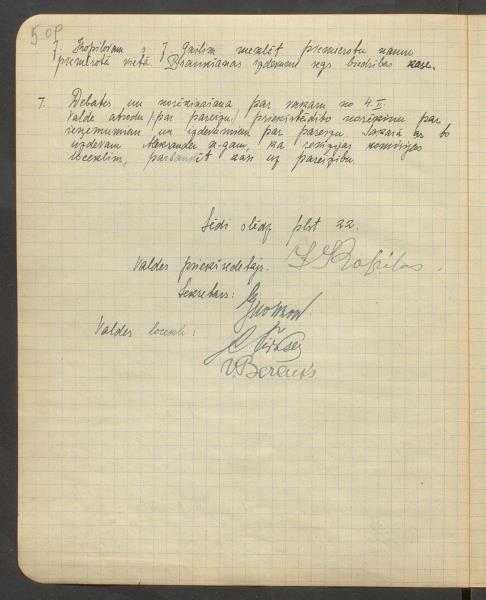 50p
7. Kropilnam un J. Gailim meklēt piemērotu namu
piemērotā vietā. Braukšanas izdevumi segs biedrības kase.
7. Debates un norēķināšana par vakaru no 4.II
Valde atrodu par pareizu priekšstādīto norēķinu par
ieņēmumiem un izdevumiem par pareizu. Sakarā ar to
uzdevam Aleksandra k-gam, kā revīzijas komisijas
loceklim, pārbaudīt kasi uz pareizību.
Sēdi slēdz plkst 22.
Valdes priekšsēdētājs.
Sekretārs:
Valdes locekļi:
V. Berenks